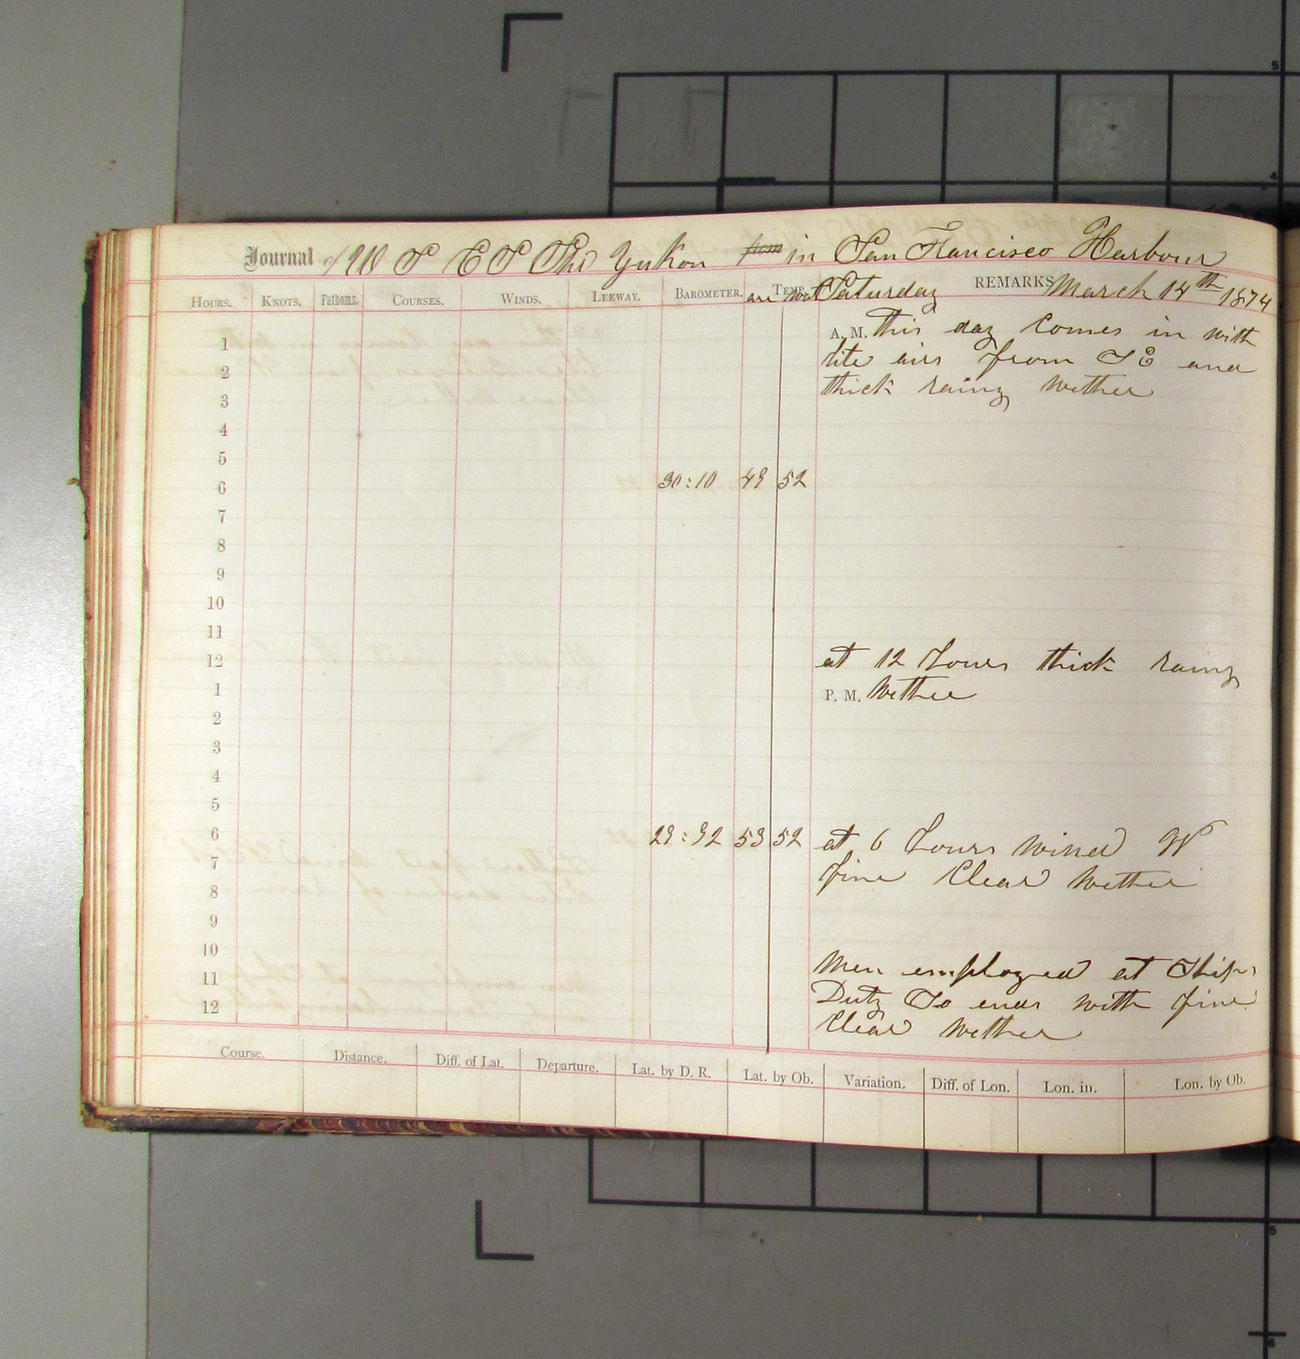 Journal of U S C S Sho Yukon from in San Francisco Harbour
HOURS. KNOTS. Fathoms. COURSES. WINDS. LEEWAY. BAROMETER. TEMP. REMARKS
air wat Saturday March 14th 1874
A. M. this day Comes in with
1
lite airs from S E and
2
thick rainy wether
3
4
5
6 30:10 49 52
7
8
9
10
11
12 at 12 Hours thick rainy
1 P. M. Wether
2
3
4
5
6 29:92 53 52 at 6 Hours Wind W
7 fine Clear Wether
8
9
10 Men employed at Ships
11 Duty So ends with fine
12 Clear Wether
Course. Distance. Diff. of Lat. Departure. Lat. by D. R. Lat. by Ob. Variation. Diff. of Lon. Lon. in. Lon. by Ob.
5
4
5
6